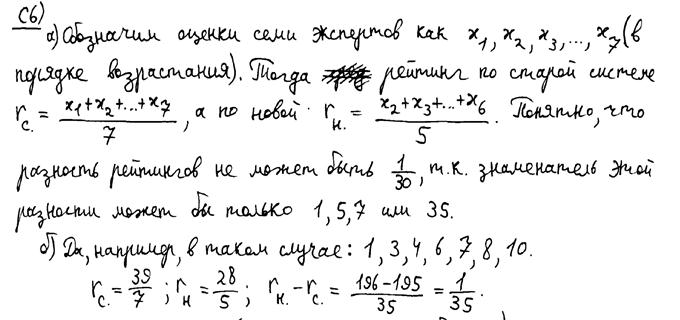 С6)
а) Обозначим оценки семи экспертов как x₁, x₂, x₃, ..., x₇ (в
порядке возрастания). Тогда рейтинг по старой системе
r_с. = (x₁+x₂+...+x₇)/7, а по новой r_н. = (x₂+x₃+...+x₆)/5. Понятно, что
разность рейтингов не может быть 1/30, т.к. знаменатель этой
разности может бы только 1, 5, 7 или 35.
б) Да, например, в таком случае: 1, 3, 4, 6, 7, 8, 10.
r_с. = 39/7; r_н = 28/5; r_н. - r_с. = (196-195)/35 = 1/35.